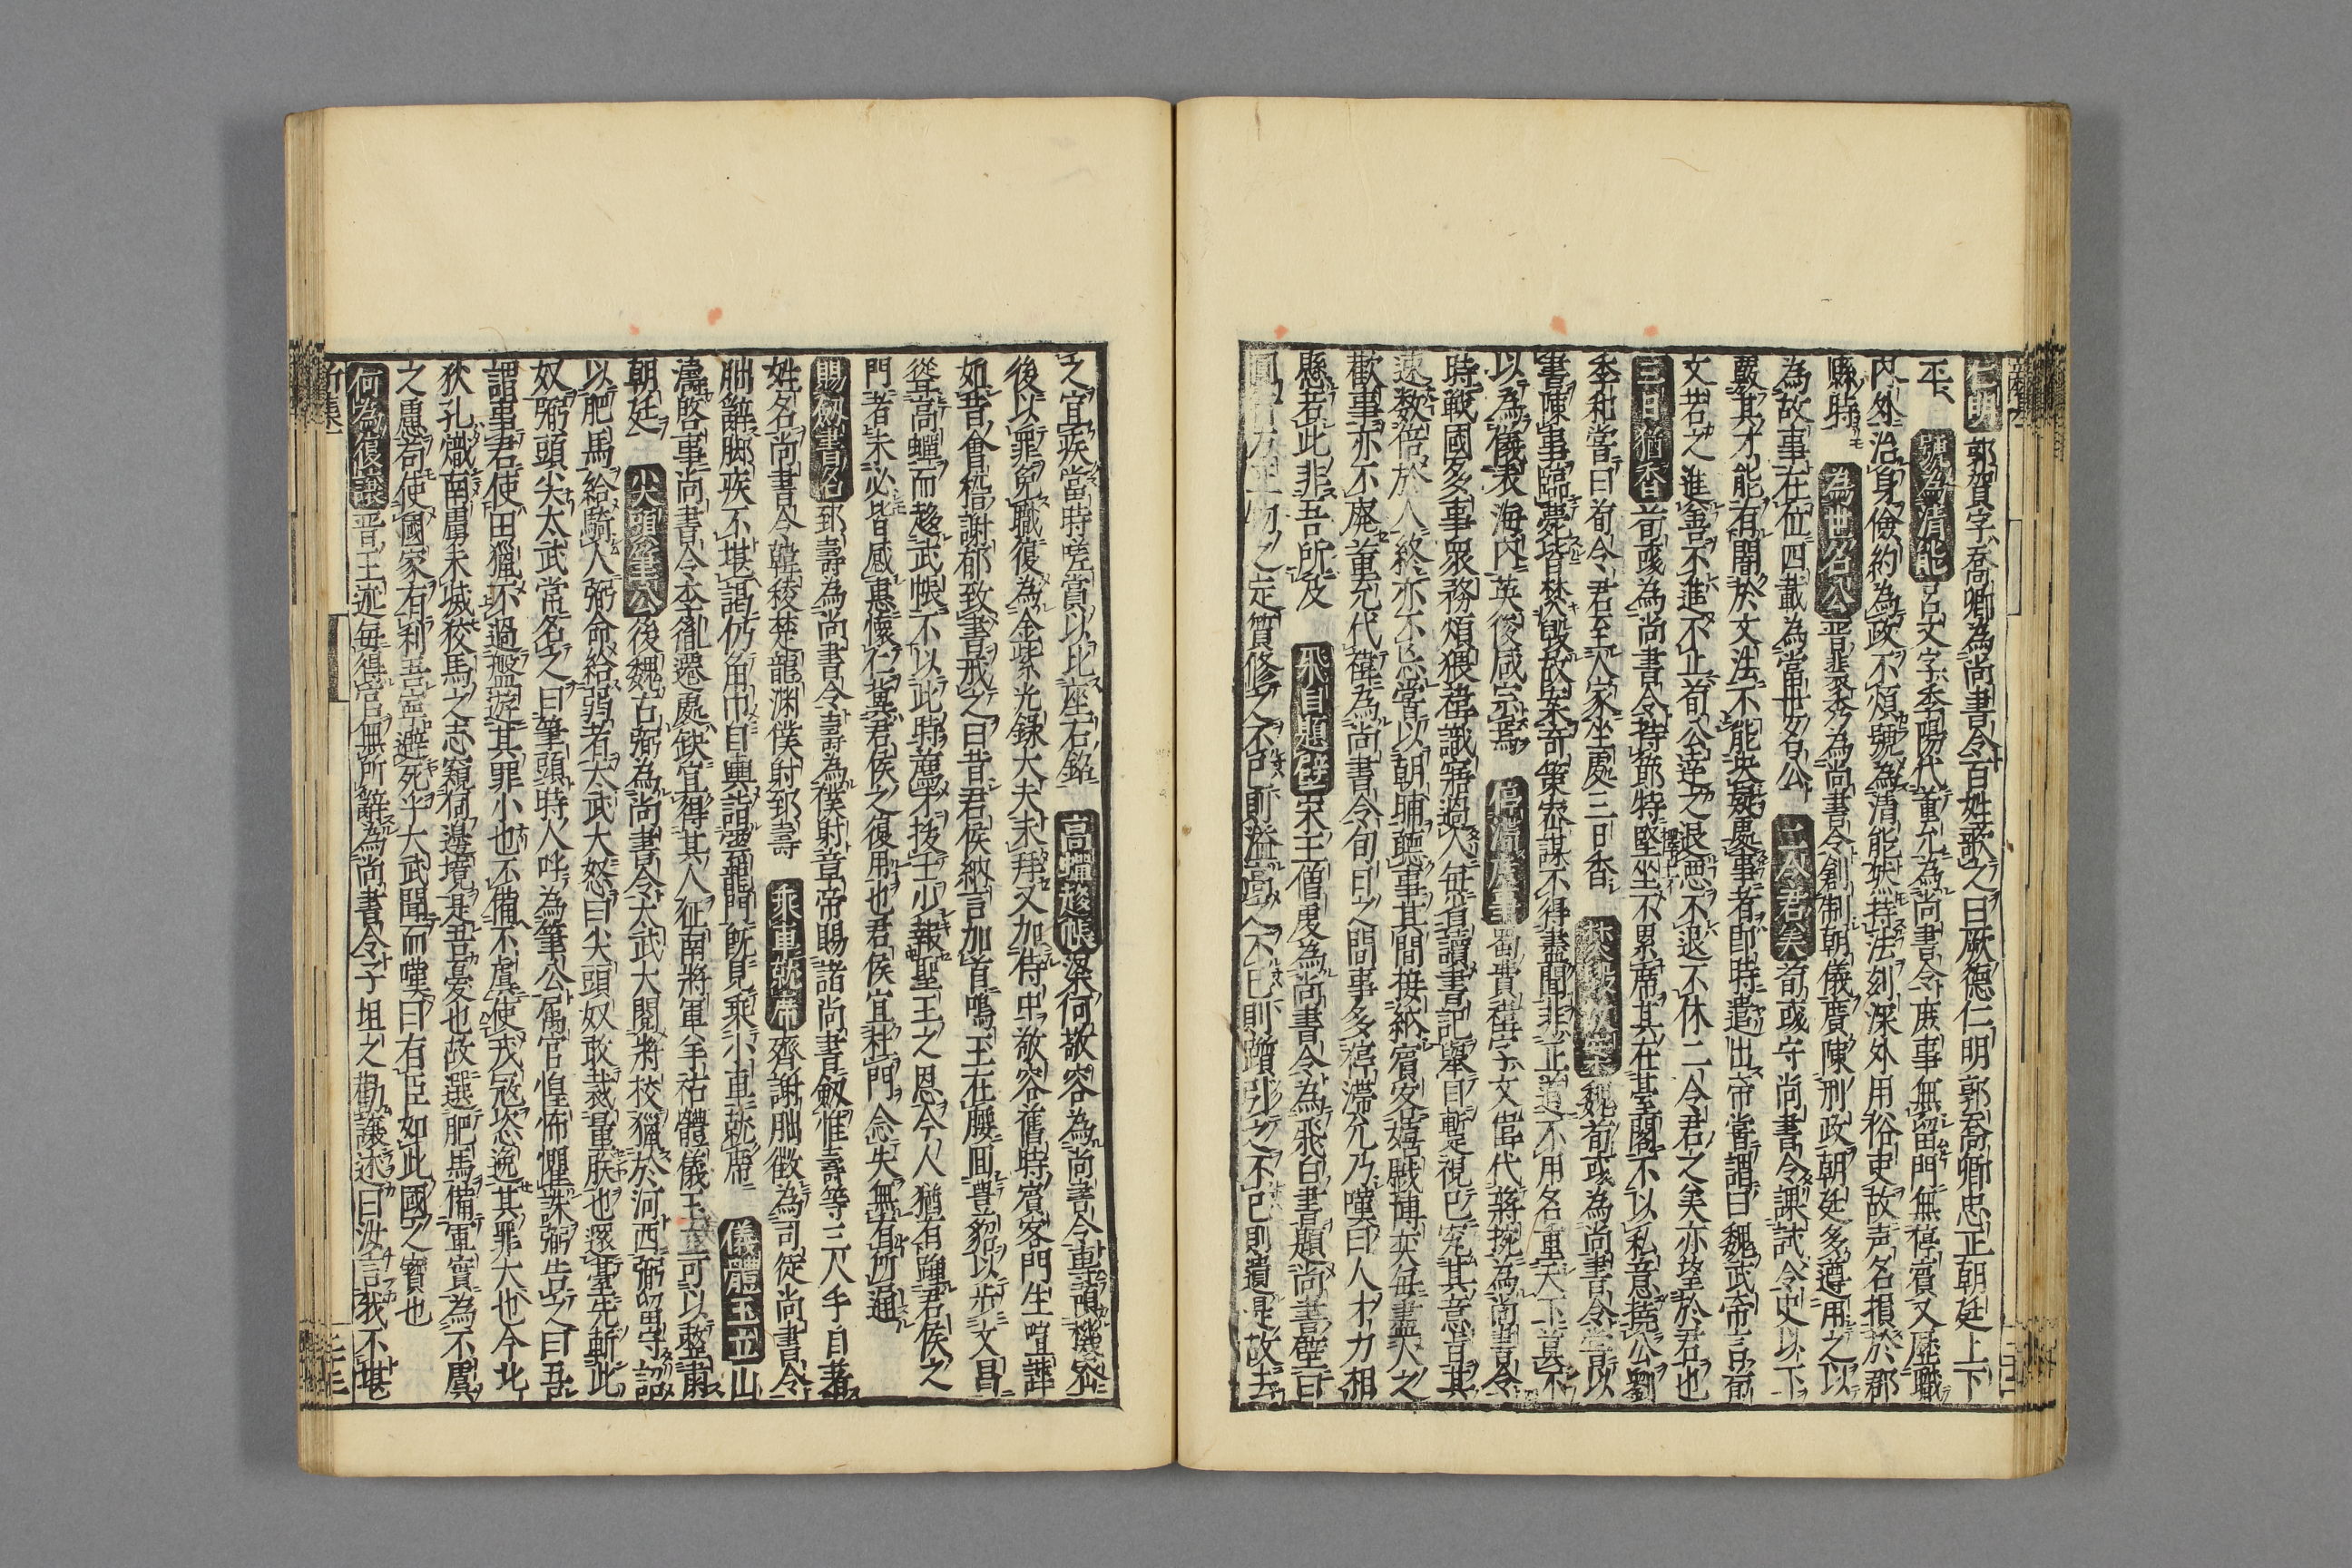 仁明郭賀字喬卿為尚書令百姓歌之曰厥德仁明郭喬卿忠正朝廷上下
平號為清能呂文字季陽代董允為尚書令庶事無留門無停賓又歷職
内外治身儉約為政不煩號為清能然持法刻深外用俗吏故声名損於郡
縣時為世名公晋裴秀為尚書令創制朝儀廣陳刑政朝廷多遵用之以
為故事在位四載為當世名公二令君矣荀彧守尚書令課試令史以下
覈其才能有闇於文法不能决疑處事者即時遣出帝嘗謂曰魏武帝言荀
文若之進善不進不止荀公達之退惡不退不休二令君之美亦望於君也
三日猶香荀彧為尚書令持節特堅坐不累席其在臺閣不以私意撓公劉
季和嘗曰荀令君至人家坐處三日香焚毀故案魏荀彧為尚書令嘗以
書陳事臨薨皆焚毀故案奇策密謀不得盡聞非正道不用名重天下莫不
以為儀表海内英俊咸宗焉停滯庶事蜀費禕字文偉代蔣琬為尚書令
時戰國多事衆務煩猥禕識寤過人每省讀書記舉目暫視已究其意旨其
速数倍於人終亦不忘嘗以朝晡聽事其間接納賓客嬉戲博奕每盡人之
歡事亦不廢董允代禕為尚書令旬日之間事多停滯允乃嘆曰人才力相
懸若此非吾所及飛白題壁宋王僧虔為尚書令為飛白書題尚書壁曰
圓行方止物之定質修之不已則溢高之不已則躓引之不已則遺是故去
之宜疾當時嗟賞以比座右銘高蟬趍帳梁何敬容為尚書令車預機密
後以罪免職復為金紫光錄大夫未拜又加侍中敬容舊時賓客門生喧譁
如昔會稽謝郁致書戒之曰昔君侯納言加首鳴玉在腰回豊貂以步文昌
聳高蟬而趍武帳不以此時薦才拔士少報聖王之恩今人猶有踵君侯之
門者未必皆感惠懷仁冀君侯之復用也君侯宜杜門念失無有所通
賜劔書名郅壽為尚書令壽為僕射章帝賜諸尚書劔惟壽等三人手自著
姓名尚書令韓稜楚龍渊僕射郅壽乘車就席齊謝朏徵為司徒尚書令
朏辭脚疾不堪謁仍角巾自輿詣雲龍門既見乘小車就席儀體玉立山
濤啓事尚書令李胤遷處缺宜得其人征南將軍羊祜體儀玉立可以整肅
朝廷尖頭筆公後魏古弼為尚書令太武大閱將校獵於河西弼留守詔
以肥馬給騎人弼命給弱者太武大怒曰尖頭奴敢裁量朕也還臺先斬此
奴弼頭尖太武常名之曰筆頭時人呼為筆公属官惶怖懼誅弼告之曰吾
謂事君使田獵不過盤遊其罪小也不備不虞使戎寇恣逸其罪大也今北
狄孔熾南虜未滅狡馬之志窺伺邊境是吾憂也故選肥馬備軍實為不虞
之慮苟使國家有利吾寧避死乎大武聞而嘆曰有臣如此國之寶也
何為復讓晋王述每得官無所辭為尚書令子坦之勸讓述曰汝言我不堪